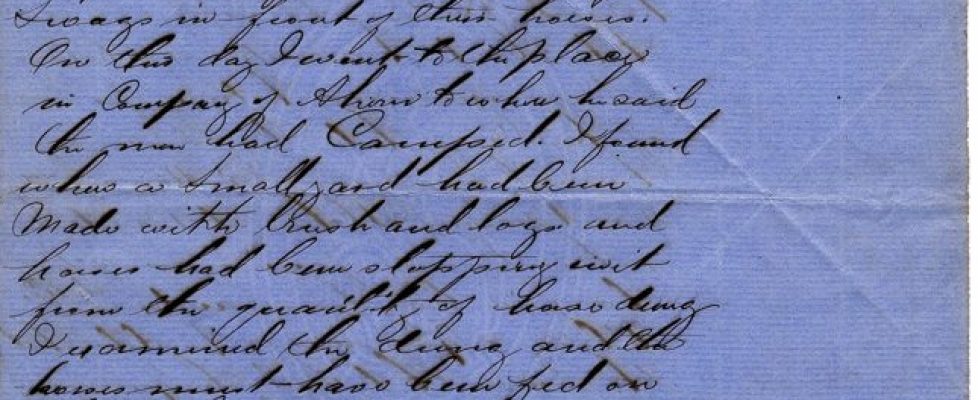 Swags in front of their horses.
On this day I went to the place
in Company of Ahern to where he said
the men had Camped. I found
where a small yard had been
Made with brush and logs and
horses had been stopping in it
from the quantity of horse dung
I examined the dung and the
horses must have been fed on